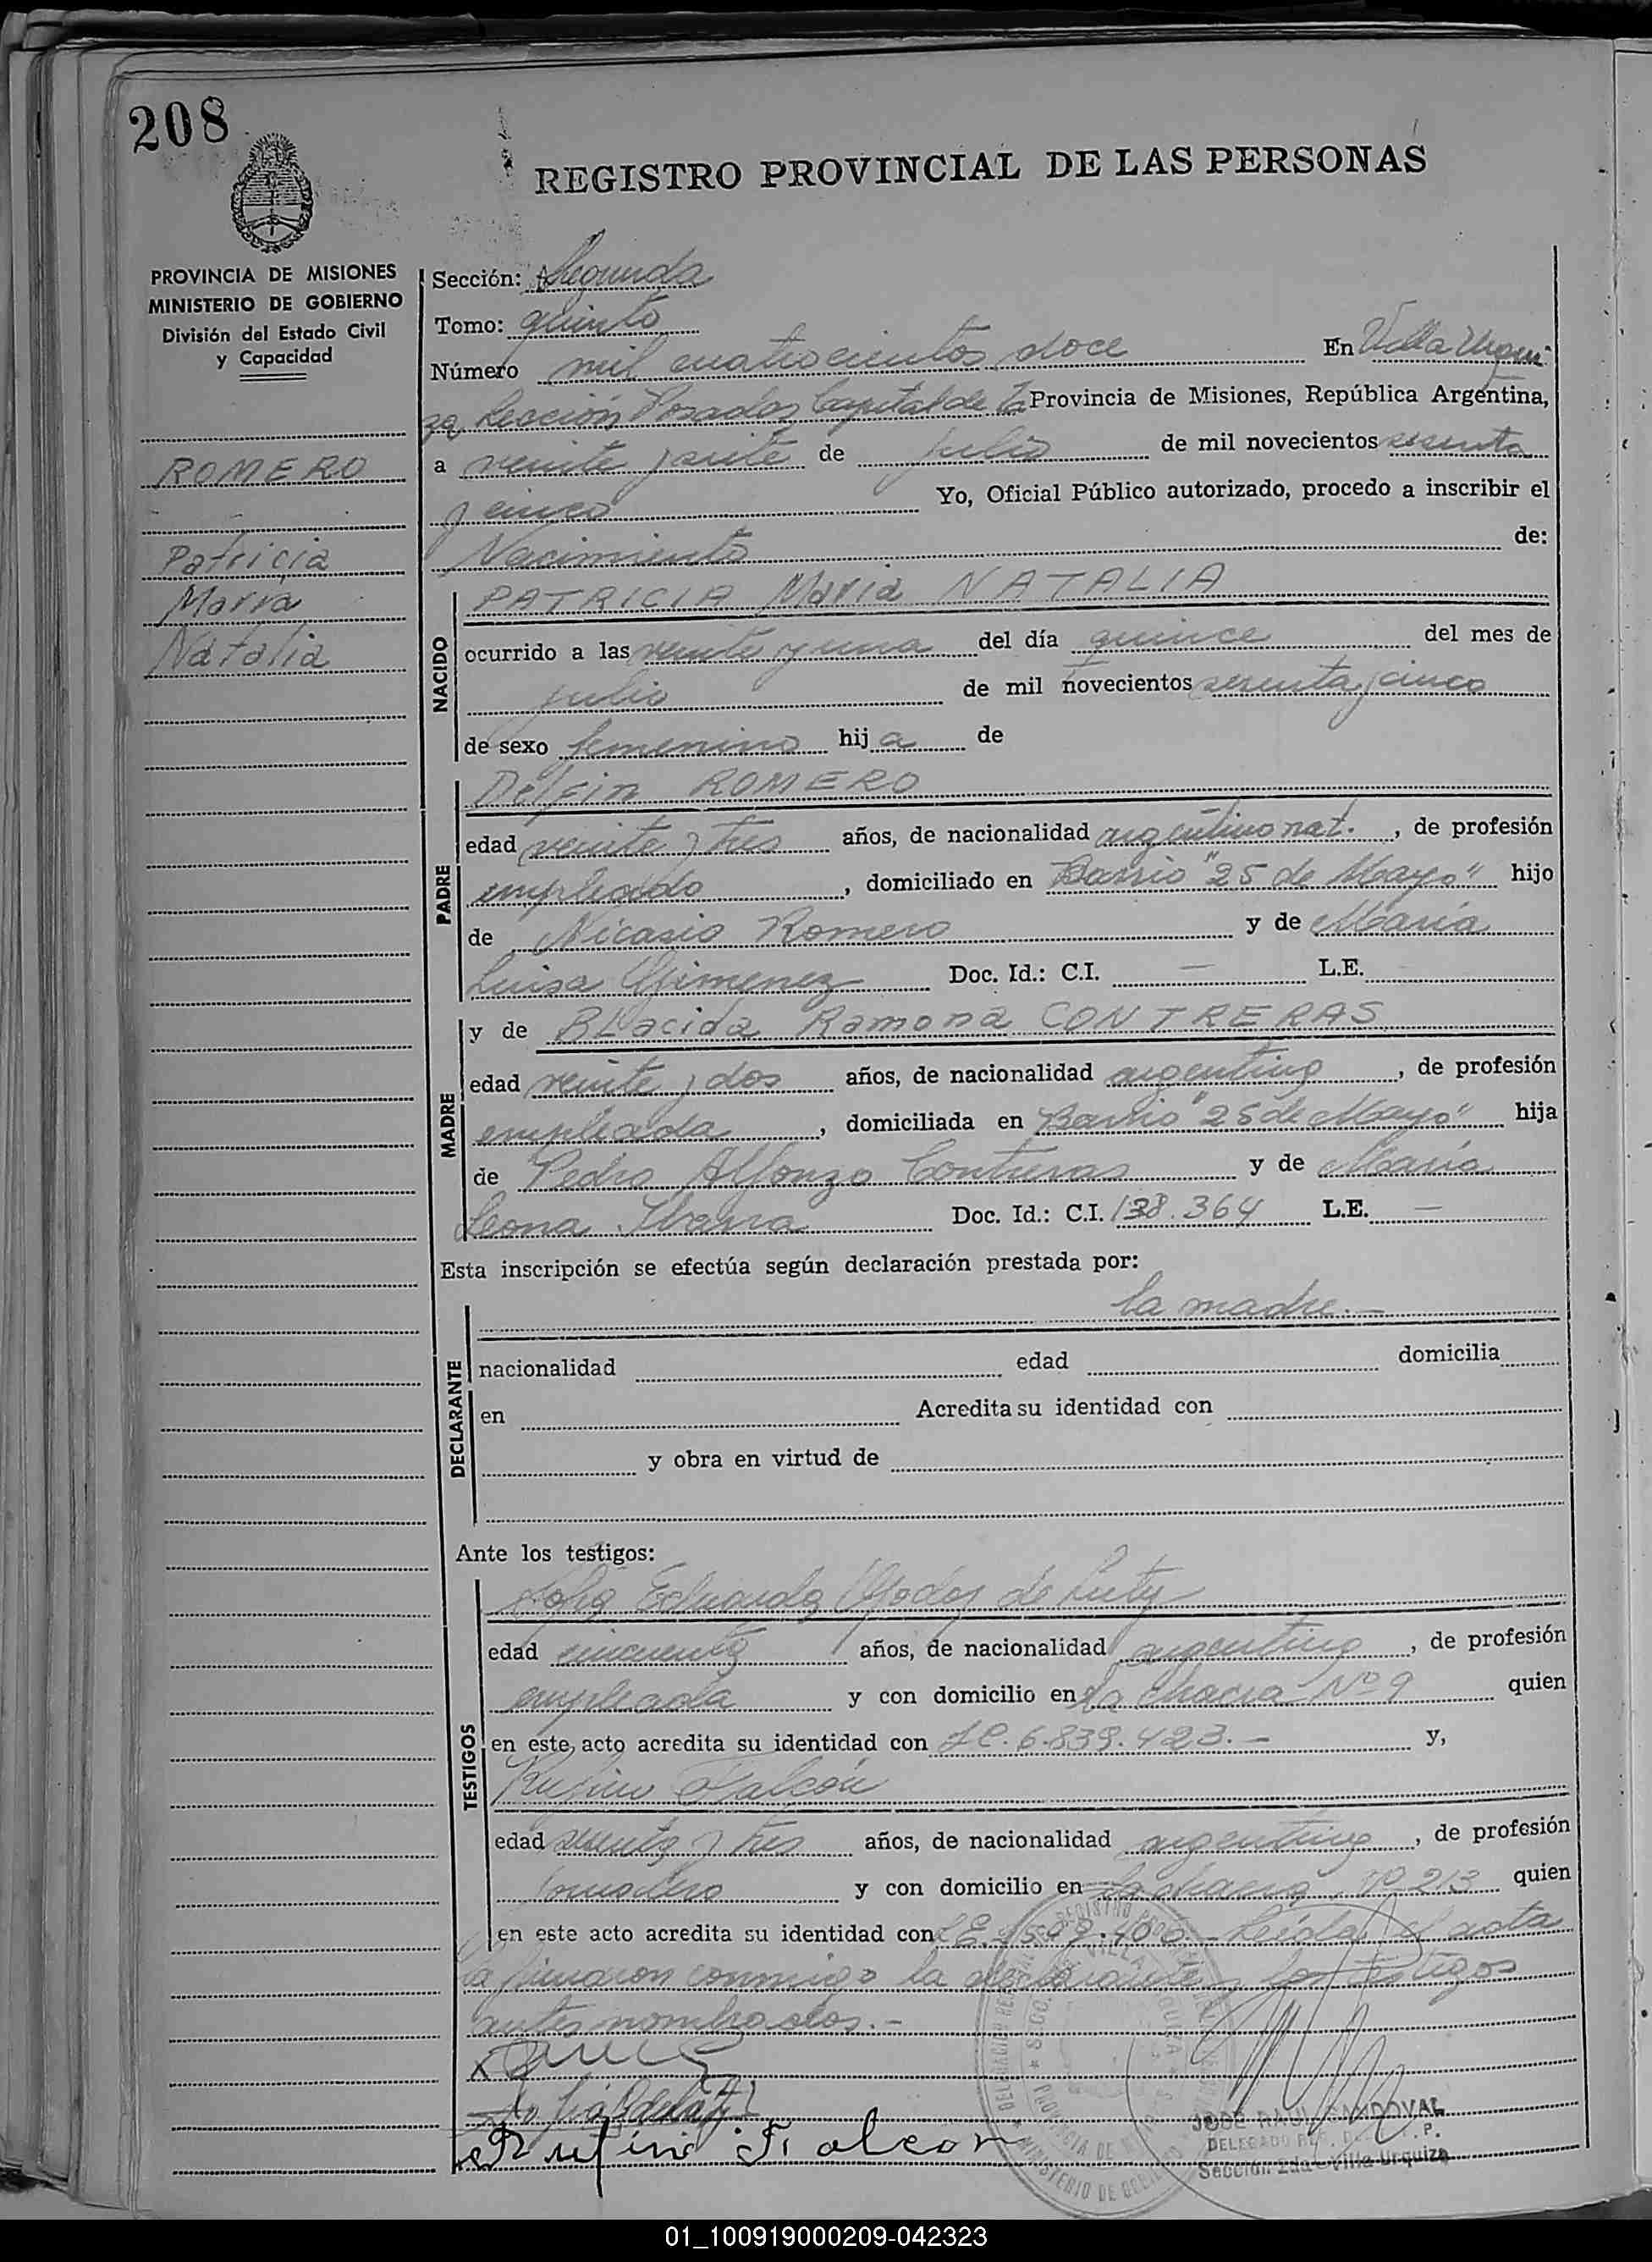 208
REGISTRO PROVINCIAL DE LAS PERSONAS
PROVINCIA DE MISIONES
MINISTERIO DE GOBIERNO
División del Estado Civil
y Capacidad
ROMERO
Patricia
María
Natalia
Sección: Segunda
Tomo: quinto
Número mil cuatrocientos doce En Villa Urqui
za Sección Posadas Capital de la Provincia de Misiones, República Argentina,
a veinte y siete de julio de mil novecientos sesenta
y cinco Yo, Oficial Público autorizado, procedo a inscribir el
Nacimiento de:
NACIDO
PATRICIA María NATALIA
ocurrido a las veinte y una del día quince del mes de
julio de mil novecientos sesenta y cinco
de sexo femenino hij a de
PADRE
Delfin ROMERO
edad veinte y tres años, de nacionalidad argentino nat. , de profesión
empleado , domiciliado en Barrio "25 de Mayo" hijo
de Nicasio Romero y de María
Luisa Gimenez Doc. Id.: C.I. — L.E.
MADRE
y de BLacida Ramona CONTRERAS
edad veinte y dos años, de nacionalidad argentina , de profesión
empleada , domiciliada en Barrio "25 de Mayo" hija
de Pedro Alfonzo Contreras y de María
Leona Ibarra Doc. Id.: C.I. 138.364 L.E. —
Esta inscripción se efectúa según declaración prestada por:
DECLARANTE
la madre.—
nacionalidad edad domicilia
en Acredita su identidad con
y obra en virtud de
Ante los testigos:
TESTIGOS
Eduarda Godoy de
edad cincuenta años, de nacionalidad argentina , de profesión
empleada y con domicilio en la chacra Nº 9 quien
en este acto acredita su identidad con 6.839.423.— y,
Rufino Falcón
edad y tres años, de nacionalidad argentina , de profesión
jornalero y con domicilio en la chacra Nº 213 quien
en este acto acredita su identidad con L.E. Leída el acta
la firmaron conmigo la declarante y los testigos
antes nombrados.—
Rufino Falcon
JOSE RAUL SANDOVAL
DELEGADO
Sección 2da - Villa Urquiza
01_100919000209-042323